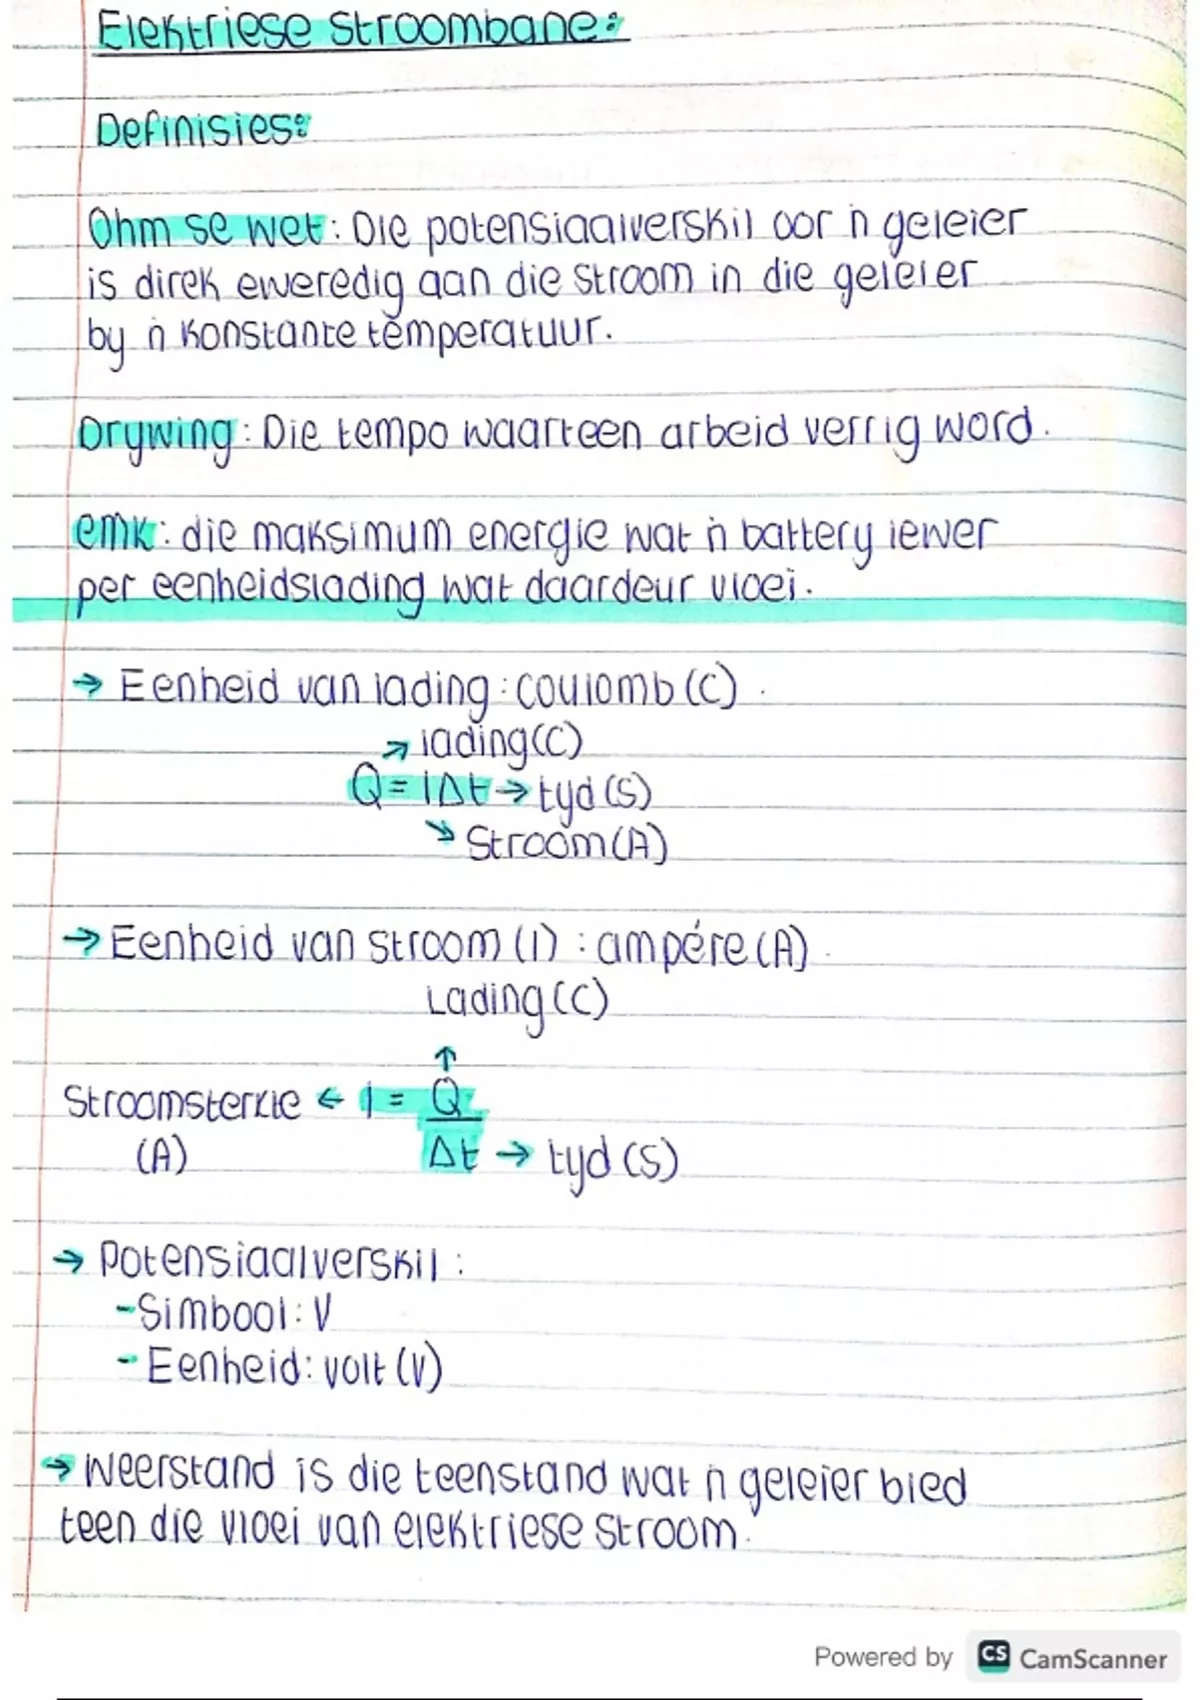 Elektriese Stroombane:
Definisies:
Ohm se wet: Die potensiaalverskil oor 'n geleier
is direk eweredig aan die stroom in die geleier
by 'n konstante temperatuur.
Drywing: Die tempo waarteen arbeid verrig word.
emk: die maksimum energie wat 'n battery lewer
per eenheidslading wat daardeur vloei.
→ Eenheid van lading: coulomb (C).
↗ lading (C)
Q = I∆t → tyd (s)
↘ Stroom (A)
→ Eenheid van stroom (I) : ampére (A).
Lading (C)
↑
Stroomsterkte ← I = Q
(A) ∆t → tyd (s)
→ Potensiaalverskil :
- Simbool: V
- Eenheid: volt (V)
→ Weerstand is die teenstand wat 'n geleier bied
teen die vloei van elektriese stroom.
Powered by CS CamScanner